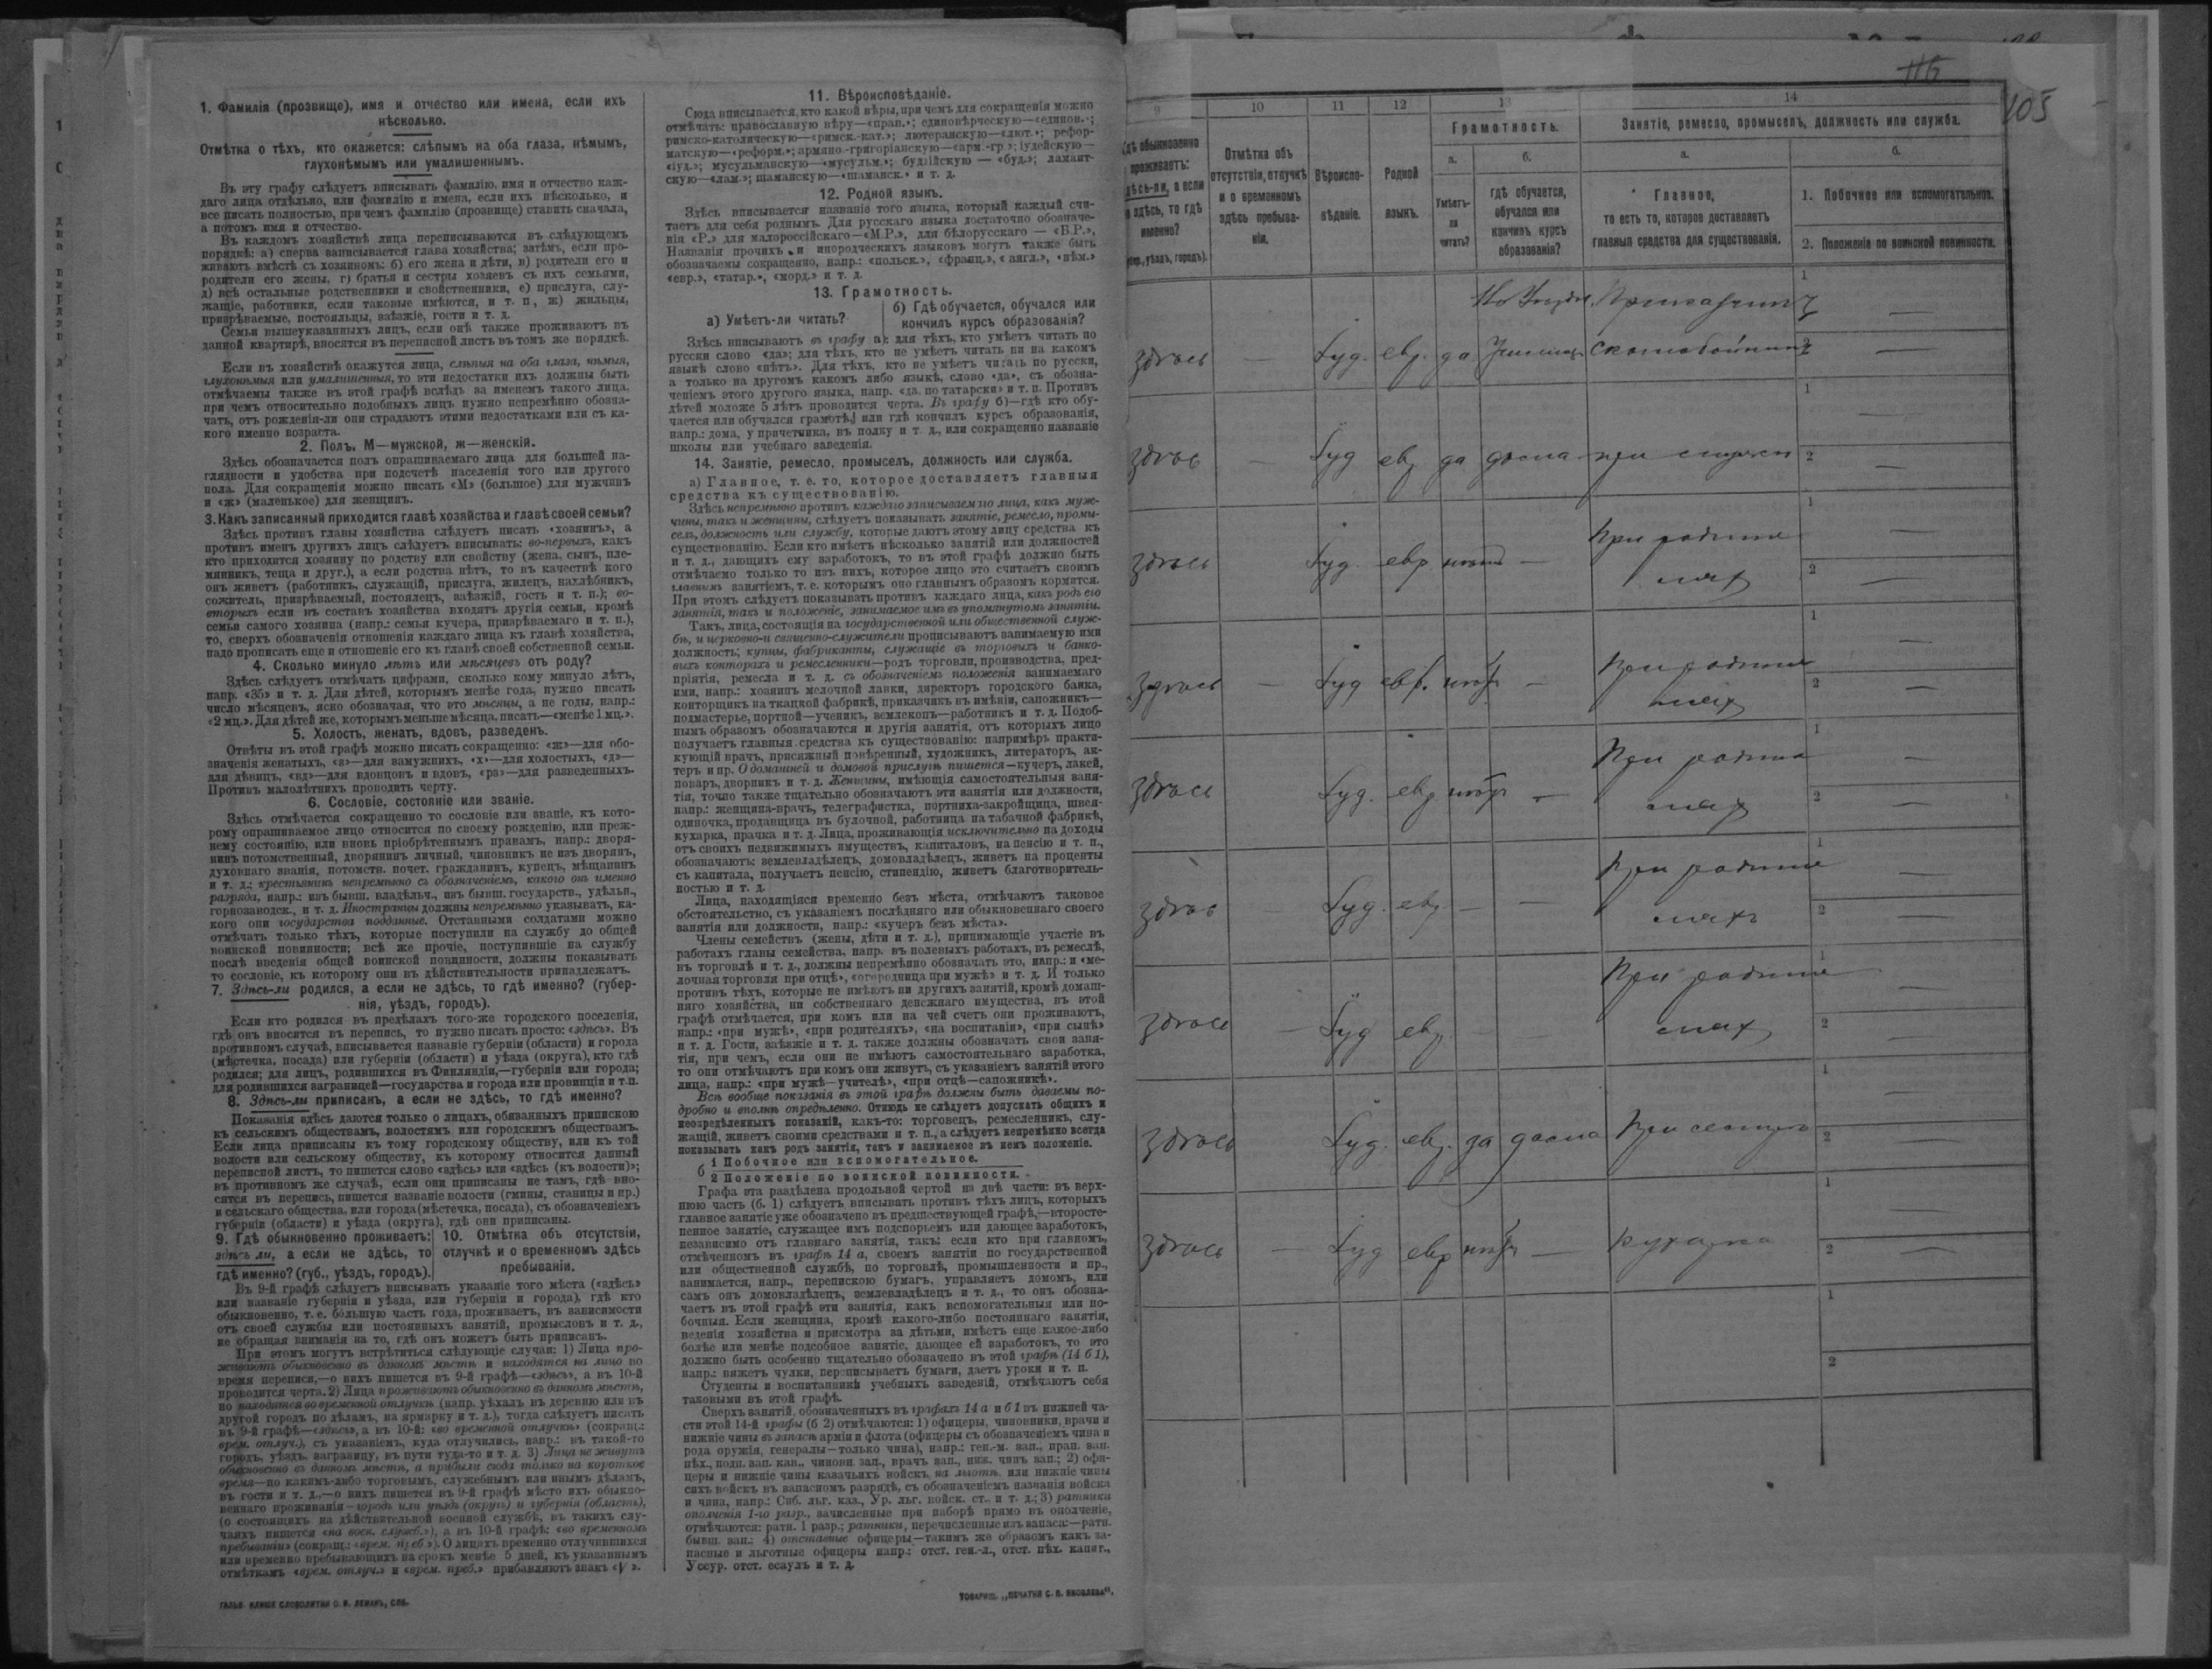 1. Фамилія (прозвище), имя и отчество или имена, если ихъ
нѣсколько.
Отмѣтка о тѣхъ, кто окажется: слѣпымъ на оба глаза, нѣмымъ,
глухонѣмымъ или умалишеннымъ.
Въ эту графу слѣдуетъ вписывать фамилію, имя и отчество каж-
даго лица отдѣльно, или фамилію и имена, если ихъ нѣсколько, и
все писать полностью, при чемъ фамилію (прозвище) ставить сначала,
а потомъ имя и отчество.
Въ каждомъ хозяйствѣ лица переписываются въ слѣдующемъ
порядкѣ: а) сперва записывается глава хозяйства; затѣмъ, если про-
живаютъ вмѣстѣ съ хозяиномъ: б) его жена и дѣти, в) родители его и
родители его жены, г) братья и сестры хозяевъ съ ихъ семьями,
д) всѣ остальные родственники и свойственники, е) прислуга, слу-
жащіе, работники, если таковые имѣются, и т. п, ж) жильцы,
призрѣваемые, постояльцы, заѣзжіе, гости и т. д.
Семьи вышеуказанныхъ лицъ, если онѣ также проживаютъ въ
данной квартирѣ, вносятся въ переписной листъ въ томъ же порядкѣ.
Если въ хозяйствѣ окажутся лица, слѣпыя на оба глаза, нѣмыя,
глухонѣмыя или умалишенныя, то эти недостатки ихъ должны быть
отмѣчаемы также въ этой графѣ вслѣдъ за именемъ такого лица,
при чемъ относительно подобныхъ лицъ нужно непремѣнно обозна-
чать, отъ рожденія-ли они страдаютъ этими недостатками или съ ка-
кого именно возраста.
2. Полъ. М—мужской, ж—женскій.
Здѣсь обозначается полъ опрашиваемаго лица для большей на-
глядности и удобства при подсчетѣ населенія того или другого
пола. Для сокращенія можно писать «М» (большое) для мужчинъ
и «ж» (маленькое) для женщинъ.
3. Какъ записанный приходится главѣ хозяйства и главѣ своей семьи?
Здѣсь противъ главы хозяйства слѣдуетъ писать «хозяинъ», а
противъ именъ другихъ лицъ слѣдуетъ вписывать: во-первыхъ, какъ
кто приходится хозяину по родству или свойству (жена, сынъ, пле-
мянникъ, теща и друг.), а если родства нѣтъ, то въ качествѣ кого
онъ живетъ (работникъ, служащій, прислуга, жилецъ, нахлѣбникъ,
сожитель, призрѣваемый, постоялецъ, заѣзжій, гость и т. п.); во-
вторыхъ если въ составъ хозяйства входятъ другія семьи, кромѣ
семьи самого хозяина (напр.: семья кучера, призрѣваемаго и т. п.),
то, сверхъ обозначенія отношенія каждаго лица къ главѣ хозяйства,
надо прописать еще и отношеніе его къ главѣ своей собственной семьи.
4. Сколько минуло лѣтъ или мѣсяцевъ отъ роду?
Здѣсь слѣдуетъ отмѣчать цифрами, сколько кому минуло лѣтъ,
напр. «35» и т. д. Для дѣтей, которымъ менѣе года, нужно писать
число мѣсяцевъ, ясно обозначая, что это мѣсяцы, а не годы, напр.:
«2 мц.». Для дѣтей же, которымъ меньше мѣсяца, писать—«менѣе 1 мц.».
5. Холостъ, женатъ, вдовъ, разведенъ.
Отвѣты въ этой графѣ можно писать сокращенно: «ж»—для обо-
значенія женатыхъ, «з»—для замужнихъ, «х»—для холостыхъ, «д»—
для дѣвицъ, «вд»—для вдовцовъ и вдовъ, «рз»—для разведенныхъ.
Противъ малолѣтнихъ проводить черту.
6. Сословіе, состояніе или званіе.
Здѣсь отмѣчается сокращенно то сословіе или званіе, къ кото-
рому опрашиваемое лицо относится по своему рожденію, или преж-
нему состоянію, или вновь пріобрѣтеннымъ правамъ, напр.: дворя-
нинъ потомственный, дворянинъ личный, чиновникъ не изъ дворянъ,
духовнаго званія, потомств. почет. гражданинъ, купецъ, мѣщанинъ
и т. д.; крестьянинъ непремѣнно съ обозначеніемъ, какого онъ именно
разряда, напр.: изъ бывш. владѣльч., изъ бывш. государств., удѣльн.,
горнозаводск., и т. д. Иностранцы должны непремѣнно указывать, ка-
кого они государства подданные. Отставными солдатами можно
отмѣчать только тѣхъ, которые поступили на службу до общей
воинской повинности; всѣ же прочіе, поступившіе на службу
послѣ введенія общей воинской повинности, должны показывать
то сословіе, къ которому они въ дѣйствительности принадлежатъ.
7. Здѣсь-ли родился, а если не здѣсь, то гдѣ именно? (губер-
нія, уѣздъ, городъ).
Если кто родился въ предѣлахъ того-же городского поселенія,
гдѣ онъ вносится въ перепись, то нужно писать просто: «здѣсь». Въ
противномъ случаѣ, вписывается названіе губерніи (области) и города
(мѣстечка, посада) или губерніи (области) и уѣзда (округа), кто гдѣ
родился; для лицъ, родившихся въ Финляндіи,—губерніи или города;
для родившихся заграницей—государства и города или провинціи и т.п.
8. Здѣсь-ли приписанъ, а если не здѣсь, то гдѣ именно?
Показанія здѣсь даются только о лицахъ, обязанныхъ припискою
къ сельскимъ обществамъ, волостямъ или городскимъ обществамъ.
Если лица приписаны къ тому городскому обществу, или къ той
волости или сельскому обществу, къ которому относится данный
переписной листъ, то пишется слово «здѣсь» или «здѣсь (къ волости)»;
въ противномъ же случаѣ, если они приписаны не тамъ, гдѣ вно-
сятся въ перепись, пишется названіе волости (гмины, станицы и пр.)
и сельскаго общества, или города (мѣстечка, посада), съ обозначеніемъ
губерніи (области) и уѣзда (округа), гдѣ они приписаны.
9. Гдѣ обыкновенно проживаетъ:
здѣсь ли, а если не здѣсь, то
гдѣ именно? (губ., уѣздъ, городъ).
10. Отмѣтка объ отсутствіи,
отлучкѣ и о временномъ здѣсь
пребываніи.
Въ 9-й графѣ слѣдуетъ вписывать указаніе того мѣста («здѣсь»
или названіе губерніи и уѣзда, или губерніи и города), гдѣ кто
обыкновенно, т. е. большую часть года, проживаетъ, въ зависимости
отъ своей службы или постоянныхъ занятій, промысловъ и т. д.,
не обращая вниманія на то, гдѣ онъ можетъ быть приписанъ.
При этомъ могутъ встрѣтиться слѣдующіе случаи: 1) Лица про-
живаютъ обыкновенно въ данномъ мѣстѣ и находятся на лицо во
время переписи,—о нихъ пишется въ 9-й графѣ—«здѣсь», а въ 10-й
проводится черта. 2) Лица проживаютъ обыкновенно въ данномъ мѣстѣ,
но находятся во временной отлучкѣ (напр. уѣхалъ въ деревню или въ
другой городъ по дѣламъ, на ярмарку и т. д.), тогда слѣдуетъ писать
въ 9-й графѣ—«здѣсь», а въ 10-й: «во временной отлучкѣ» (сокращ.:
врем. отлуч.), съ указаніемъ, куда отлучились, напр.: въ такой-то
городъ, уѣздъ, заграницу, въ пути туда-то и т. д. 3) Лица не живутъ
обыкновенно въ данномъ мѣстѣ, а прибыли сюда только на короткое
время—по какимъ-либо торговымъ, служебнымъ или инымъ дѣламъ,
въ гости и т. д.,—о нихъ пишется въ 9-й графѣ мѣсто ихъ обыкно-
веннаго проживанія—городъ или уѣздъ (округъ) и губернія (область),
(о состоящихъ на дѣйствительной военной службѣ, въ такихъ слу-
чаяхъ пишется «на воен. служб.»), а въ 10-й графѣ: «во временномъ
пребываніи» (сокращ.: «врем. преб.»). О лицахъ временно отлучившихся
или временно пребывающихъ на срокъ менѣе 5 дней, къ указаннымъ
отмѣткамъ «врем. отлуч.» и «врем. преб.» прибавляютъ знакъ «V».
11. Вѣроисповѣданіе.
Сюда вписывается, кто какой вѣры, при чемъ для сокращенія можно
отмѣчать: православную вѣру—«прав.»; единовѣрческую—«единов.»;
римско-католическую—«римск.-кат.»; лютеранскую—«лют.»; рефор-
матскую—«реформ.»; армяно-григоріанскую—«арм.-гр.»; іудейскую—
«іуд.»; мусульманскую—«мусульм.»; буддійскую — «буд.»; ламаит-
скую—«лам.»; шаманскую—«шаманск.» и т. д.
12. Родной языкъ.
Здѣсь вписывается названіе того языка, который каждый счи-
таетъ для себя роднымъ. Для русскаго языка достаточно обозначе-
нія «Р.» для малороссійскаго—«М.Р.», для бѣлорусскаго — «Б.Р.»,
Названія прочихъ и инородческихъ языковъ могутъ также быть
обозначаемы сокращенно, напр.: «польск.», «франц.», «англ.», «нѣм.»
«евр.», «татар.», «морд.» и т. д.
13. Грамотность.
а) Умѣетъ-ли читать?
б) Гдѣ обучается, обучался или
кончилъ курсъ образованія?
Здѣсь вписываютъ въ графу а): для тѣхъ, кто умѣетъ читать по
русски слово «да»; для тѣхъ, кто не умѣетъ читать ни на какомъ
языкѣ слово «нѣтъ». Для тѣхъ, кто не умѣетъ читать по русски,
а только на другомъ какомъ либо языкѣ, слово «да», съ обозна-
ченіемъ этого другого языка, напр. «да, по татарски» и т. п. Противъ
дѣтей моложе 5 лѣтъ проводится черта. Въ графу б)—гдѣ кто обу-
чается или обучался грамотѣ, или гдѣ кончилъ курсъ образованія,
напр.: дома, у причетника, въ полку и т. д., или сокращенно названіе
школы или учебнаго заведенія.
14. Занятіе, ремесло, промыселъ, должность или служба.
а) Главное, т. е. то, которое доставляетъ главныя
средства къ существованію.
Здѣсь непремѣнно противъ каждаго записываемаго лица, какъ муж-
чины, такъ и женщины, слѣдуетъ показывать занятіе, ремесло, промы-
селъ, должность или службу, которые даютъ этому лицу средства къ
существованію. Если кто имѣетъ нѣсколько занятій или должностей
и т. д., дающихъ ему заработокъ, то въ этой графѣ должно быть
отмѣчаемо только то изъ нихъ, которое лицо это считаетъ своимъ
главнымъ занятіемъ, т. е. которымъ оно главнымъ образомъ кормится.
При этомъ слѣдуетъ показывать противъ каждаго лица, какъ родъ его
занятія, такъ и положеніе, занимаемое имъ въ упомянутомъ занятіи.
Такъ, лица, состоящія на государственной или общественной служ-
бѣ, и церковно-и священно-служители прописываютъ занимаемую ими
должность; купцы, фабриканты, служащіе въ торговыхъ и банко-
выхъ конторахъ и ремесленники—родъ торговли, производства, пред-
пріятія, ремесла и т. д. съ обозначеніемъ положенія занимаемаго
ими, напр.: хозяинъ мелочной лавки, директоръ городского банка,
конторщикъ на ткацкой фабрикѣ, приказчикъ въ имѣніи, сапожникъ—
подмастерье, портной—ученикъ, землекопъ—работникъ и т. д. Подоб-
нымъ образомъ обозначаются и другія занятія, отъ которыхъ лицо
получаетъ главныя средства къ существованію: напримѣръ практи-
кующій врачъ, присяжный повѣренный, художникъ, литераторъ, ак-
теръ и пр. О домашней и домовой прислугѣ пишется—кучеръ, лакей,
поваръ, дворникъ и т. д. Женщины, имѣющія самостоятельныя заня-
тія, точно также тщательно обозначаютъ эти занятія или должности,
напр.: женщина-врачъ, телеграфистка, портниха-закройщица, швея-
одиночка, продавщица въ булочной, работница на табачной фабрикѣ,
кухарка, прачка и т. д. Лица, проживающія исключительно на доходы
отъ своихъ недвижимыхъ имуществъ, капиталовъ, на пенсію и т. п.,
обозначаютъ: землевладѣлецъ, домовладѣлецъ, живетъ на проценты
съ капитала, получаетъ пенсію, стипендію, живетъ благотворитель-
ностью и т. д.
Лица, находящіяся временно безъ мѣста, отмѣчаютъ таковое
обстоятельство, съ указаніемъ послѣдняго или обыкновеннаго своего
занятія или должности, напр.: «кучеръ безъ мѣста».
Члены семействъ (жены, дѣти и т. д.), принимающіе участіе въ
работахъ главы семейства, напр. въ полевыхъ работахъ, въ ремеслѣ,
въ торговлѣ и т. д., должны непремѣнно обозначать это, напр.: и «ме-
лочная торговля при отцѣ», «огородница при мужѣ» и т. д. И только
противъ тѣхъ, которые не имѣютъ ни другихъ занятій, кромѣ домаш-
няго хозяйства, ни собственнаго денежнаго имущества, въ этой
графѣ отмѣчается, при комъ или на чей счетъ они проживаютъ,
напр.: «при мужѣ», «при родителяхъ», «на воспитаніи», «при сынѣ»
и т. д. Гости, заѣзжіе и т. д. также должны обозначать свои заня-
тія, при чемъ, если они не имѣютъ самостоятельнаго заработка,
то они отмѣчаютъ при комъ они живутъ, съ указаніемъ занятій этого
лица, напр.: «при мужѣ—учителѣ», «при отцѣ—сапожникѣ».
Всѣ вообще показанія въ этой графѣ должны быть даваемы по-
дробно и вполнѣ опредѣленно. Отнюдь не слѣдуетъ допускать общихъ и
неопредѣленныхъ показаній, какъ-то: торговецъ, ремесленникъ, слу-
жащій, живетъ своими средствами и т. п., а слѣдуетъ непремѣнно всегда
показывать какъ родъ занятія, такъ и занимаемое въ немъ положеніе.
б 1 Побочное или вспомогательное.
2 Положеніе по воинской повинности.
Графа эта раздѣлена продольной чертой на двѣ части: въ верх-
нюю часть (б. 1) слѣдуетъ вписывать противъ тѣхъ лицъ, которыхъ
главное занятіе уже обозначено въ предшествующей графѣ,—второсте-
пенное занятіе, служащее имъ подспорьемъ или дающее заработокъ,
независимо отъ главнаго занятія, такъ: если кто при главномъ,
отмѣченномъ въ графѣ 14 а, своемъ занятіи по государственной
или общественной службѣ, по торговлѣ, промышленности и пр.,
занимается, напр., перепискою бумагъ, управляетъ домомъ, или
самъ онъ домовладѣлецъ, землевладѣлецъ и т. д., то онъ обозна-
чаетъ въ этой графѣ эти занятія, какъ вспомогательныя или по-
бочныя. Если женщина, кромѣ какого-либо постояннаго занятія,
веденія хозяйства и присмотра за дѣтьми, имѣетъ еще какое-либо
болѣе или менѣе подсобное занятіе, дающее ей заработокъ, то это
должно быть особенно тщательно обозначено въ этой графѣ (14 б 1),
напр.: вяжетъ чулки, переписываетъ бумаги, даетъ уроки и т. п.
Студенты и воспитанники учебныхъ заведеній, отмѣчаютъ себя
таковыми въ этой графѣ.
Сверхъ занятій, обозначенныхъ въ графахъ 14 а и б 1 въ нижней ча-
сти этой 14-й графы (б 2) отмѣчаются: 1) офицеры, чиновники, врачи и
нижніе чины въ запасѣ арміи и флота (офицеры съ обозначеніемъ чина и
рода оружія, генералы—только чина), напр.: ген.-м. зап., прап. зап.
пѣх., подп. зап. кав., чиновн. зап., врачъ зап., ниж. чинъ зап.; 2) офи-
церы и нижніе чины казачьихъ войскъ, на льготѣ, или нижніе чины
сихъ войскъ въ запасномъ разрядѣ, съ обозначеніемъ названія войска
и чина, напр.: Сиб. льг. каз., Ур. льг. войск. ст., и т. д.; 3) ратники
ополченія 1-го разр., зачисленные при наборѣ прямо въ ополченіе,
отмѣчаются: ратн. 1 разр.; ратники, перечисленные изъ запаса:—ратн.
бывш. зап.: 4) отставные офицеры—такимъ же образомъ какъ за-
пасные и льготные офицеры напр.: отст. ген.-л., отст. пѣх. капит.,
Уссур. отст. есаулъ и т. д.
ТОВАРИЩ. „ПЕЧАТНЯ С. П. ЯКОВЛЕВА".
105
9 10 11 12 13 14
Грамотность.
Занятіе, ремесло, промыселъ, должность или служба.
обыкновенно
проживаетъ:
а если
здѣсь, то гдѣ
именно?
уѣздъ, городъ).
Отмѣтка объ
отсутствіи, отлучкѣ
и о временномъ
здѣсь пребыва-
ніи.
Вѣроиспо-
вѣданіе.
Родной
языкъ.
а.
Умѣетъ-
ли
читать?
б.
гдѣ обучается,
обучался или
кончилъ курсъ
образованія?
а.
Главное,
то есть то, которое доставляетъ
главныя средства для существованія.
б.
1. Побочное или вспомогательное.
2. Положеніе по воинской повинности.
Прикащикъ 1 —
здѣсь — Іуд. евр. да 2 —
1 —
здѣсь — Іуд евр да дома при 2 —
При родите 1 —
здѣсь Іуд. евр нѣтъ — ляхъ 2 —
При родите 1 —
здѣсь — Іуд евр. нѣтъ — ляхъ 2 —
При родите 1 —
здѣсь Іуд. евр нѣтъ — ляхъ 2 —
При родите 1 —
здѣсь — Іуд. евр. — — ляхъ 2 —
При родите 1 —
здѣсь — Іуд евр. — — ляхъ 2 —
1 —
здѣсь Іуд. евр. да дома При 2 —
1 —
здѣсь — Іуд евр нѣтъ — кухарка 2 —
1
2